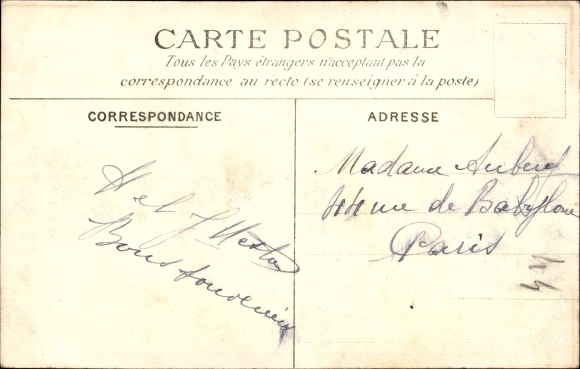 CARTE POSTALE
Tous les Pays étrangers n'acceptent pas la
correspondance au recto (se renseigner à la poste)
CORRESPONDANCE
ADRESSE
Bons souvenirs
Madame Aubery
44 rue de Babylone
Paris